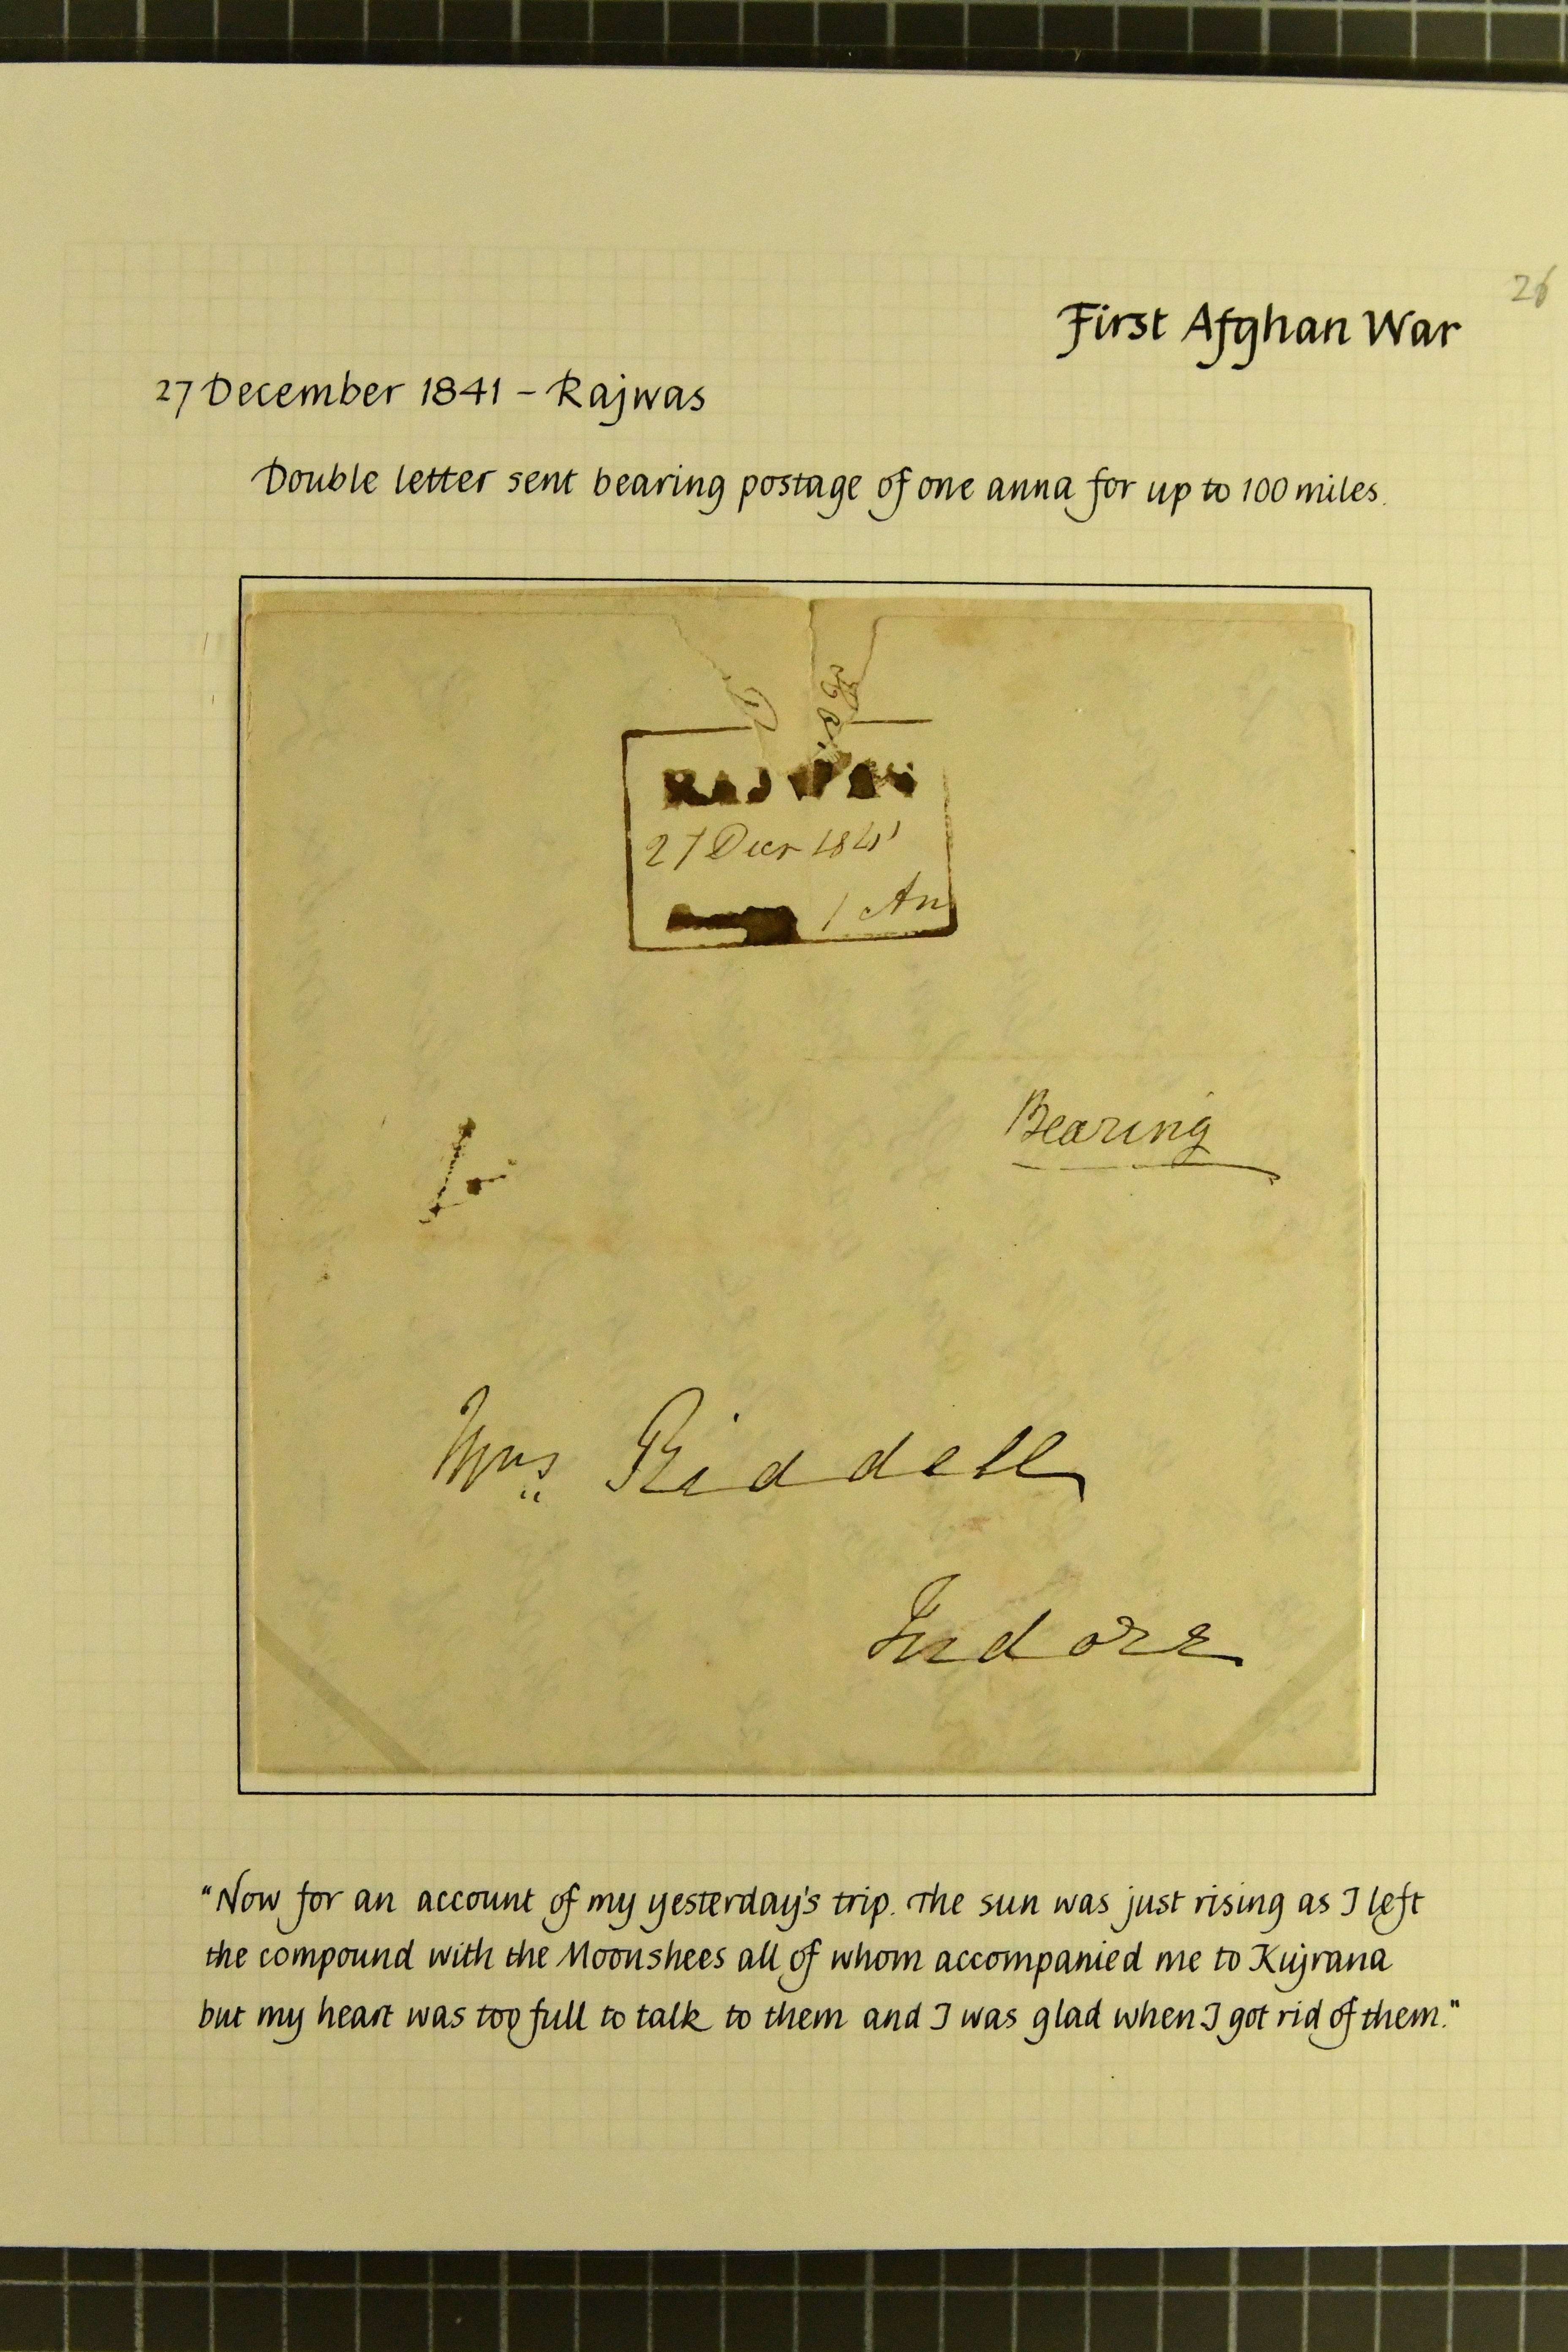 26
First Afghan War
27 December 1841 – Rajwas
Double letter sent bearing postage of one anna for up to 100 miles.
RAJWAS
27 Decr 1841
1 An
Bearing
Mrs Riddell
Indore
"Now for an account of my yesterday's trip. The sun was just rising as I left
the compound with the Moonshees all of whom accompanied me to Kujrana
but my heart was too full to talk to them and I was glad when I got rid of them."